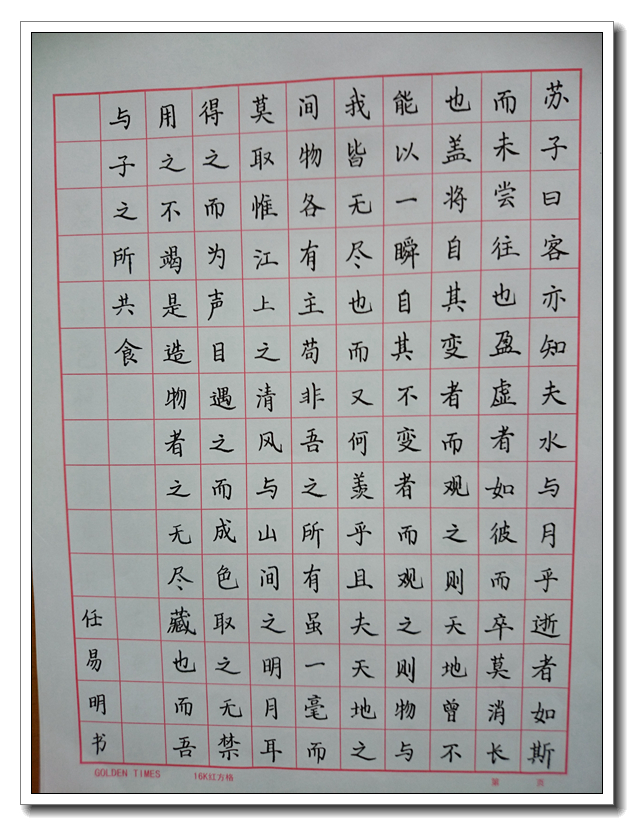 苏子曰客亦知夫水与月乎逝者如斯
而未尝往也盈虚者如彼而卒莫消长
也盖将自其变者而观之则天地曾不
能以一瞬自其不变者而观之则物与
我皆无尽也而又何羡乎且夫天地之
间物各有主苟非吾之所有虽一毫而
莫取惟江上之清风与山间之明月耳
得之而为声目遇之而成色取之无禁
用之不竭是造物者之无尽藏也而吾
与子之所共食
任易明书
GOLDEN TIMES 16K红方格 第 页